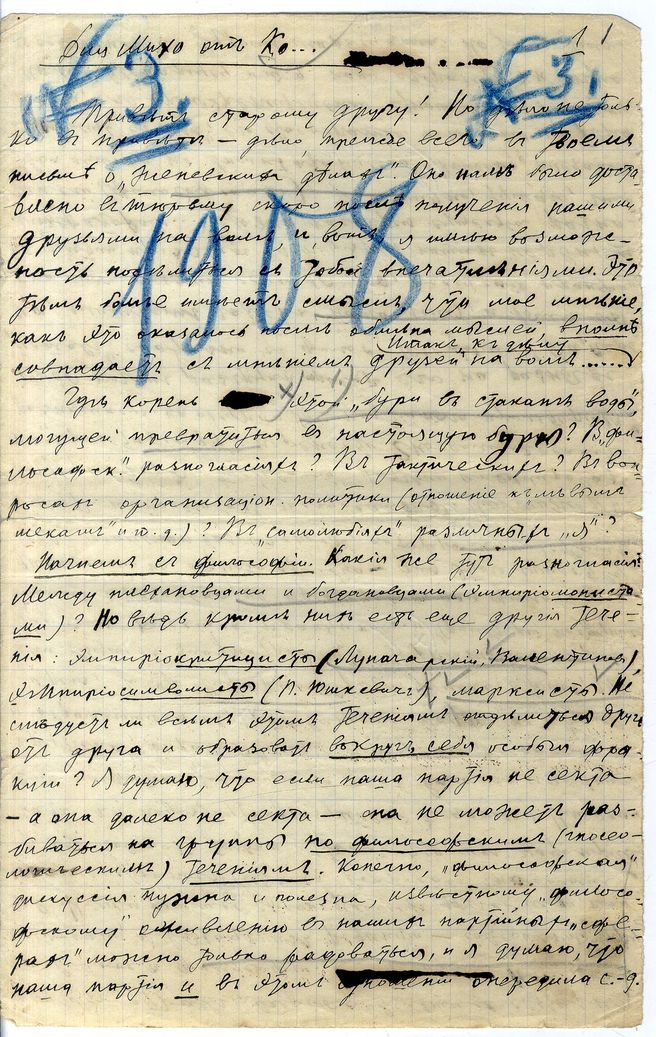 Для Михо отъ Ко...
1 1
№ 3.
№ 3.
1908
Привѣтъ старому другу! Но дѣло не толь-
ко въ привѣтѣ — дѣло, прежде всего въ твоемъ
письмѣ о „женевскихъ дѣлахъ". Оно намъ было доста-
влено въ тюрьму скоро послѣ полученія нашими
друзьями на волѣ, и, вотъ я имѣю возмож-
ность подѣлиться съ тобой впечатлѣніями. Это
тѣмъ болѣе имѣетъ смыслъ, что мое мнѣніе,
какъ это оказалось послѣ обмѣна мыслей, вполнѣ
совпадаетъ съ мнѣніемъ друзей на волѣ......
Итакъ, къ дѣлу
Гдѣ корень х) 1.) этой „бури въ стаканѣ воды",
могущей превратиться въ настоящую бурю? В „фи-
лософск." разногласіяхъ? Въ тактическихъ? Въ воп-
росахъ организаціон. политики (отношеніе къ „лѣвымъ
мекамъ" и т. д.)? Въ „самолюбіяхъ" различныхъ „я"?
Начнемъ съ философіи. Какія же тутъ разногласія?
Между плехановцами и богдановцами (эмпиріомониста-
ми)? Но вѣдь кромѣ нихъ есть еще другія тече-
нія: эмпиріокритицисты (Луначарскій, Валентиновъ),
эмпиріосимволисты (П. Юшкевичъ), марксисты. Не
слѣдуетъ ли всѣмъ этимъ теченіямъ отдѣлиться другъ
отъ друга и образовать вокругъ себя особыя фрак-
ціи? Я думаю, что если наша партія не секта
— а она далеко не секта — она не можетъ раз-
биваться на группы по философскимъ (гносео-
логическимъ) теченіямъ. Конечно, „философская"
дискуссія нужна и полезна, извѣстному „филосо-
фскому" оживленію въ нашихъ партійныхъ „сфе-
рахъ" можно только радоваться, и я думаю, что
наша партія и въ этомъ отношеніи опередила с.-д.